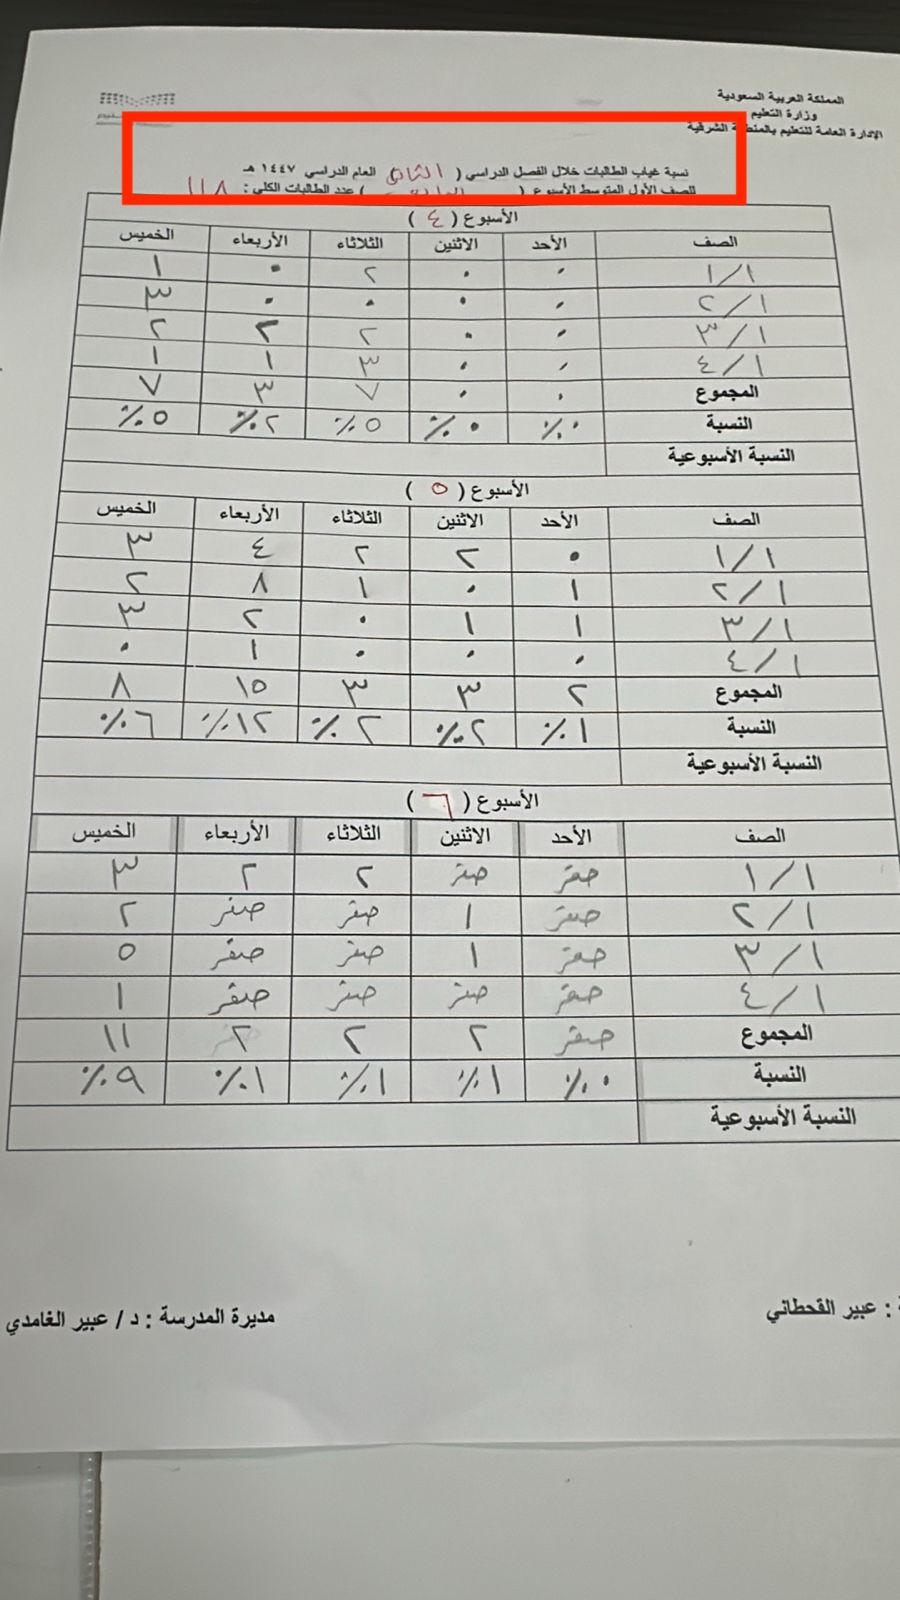 المملكة العربية السعودية
وزارة التعليم
الإدارة العامة للتعليم بالمنطقة الشرقية
نسبة غياب الطالبات خلال الفصل الدراسي ( الثاني ) العام الدراسي ١٤٤٧ هـ
للصف الأول المتوسط الأسبوع ( ) عدد الطالبات الكلي : ١١٨
الأسبوع ( ٤ )
الصف الأحد الاثنين الثلاثاء الأربعاء الخميس
١/١ ٠ ٠ ٢ ٠ ١
٢/١ ٠ ٠ ٠ ٠ ٣
٣/١ ٠ ٠ ٢ ٢ ٢
٤/١ ٠ ٠ ٣ ١ ١
المجموع ٠ ٠ ٧ ٣ ٧
النسبة ٠٪ ٠٪ ٥٪ ٢٪ ٥٪
النسبة الأسبوعية
الأسبوع ( ٥ )
الصف الأحد الاثنين الثلاثاء الأربعاء الخميس
١/١ ٠ ٢ ٢ ٤ ٣
٢/١ ١ ٠ ١ ٨ ٢
٣/١ ١ ١ ٠ ٢ ٣
٤/١ ٠ ٠ ٠ ١ ٠
المجموع ٢ ٣ ٣ ١٥ ٨
النسبة ١٪ ٢٪ ٢٪ ١٢٪ ٦٪
النسبة الأسبوعية
الأسبوع ( ٦ )
الصف الأحد الاثنين الثلاثاء الأربعاء الخميس
١/١ صفر صفر ٢ ٢ ٣
٢/١ صفر ١ صفر صفر ٢
٣/١ صفر ١ صفر صفر ٥
٤/١ صفر صفر صفر صفر ١
المجموع صفر ٢ ٢ ٢ ١١
النسبة ٠٪ ١٪ ١٪ ١٪ ٩٪
النسبة الأسبوعية
: عبير القحطاني
مديرة المدرسة : د / عبير الغامدي